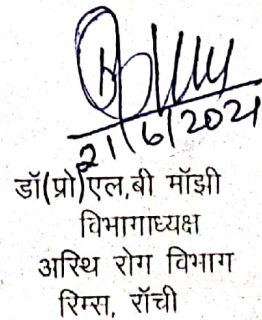 21/6/2021
डॉ(प्रो)एल.बी मॉझी
विभागाध्यक्ष
अस्थि रोग विभाग
रिम्स, रॉची